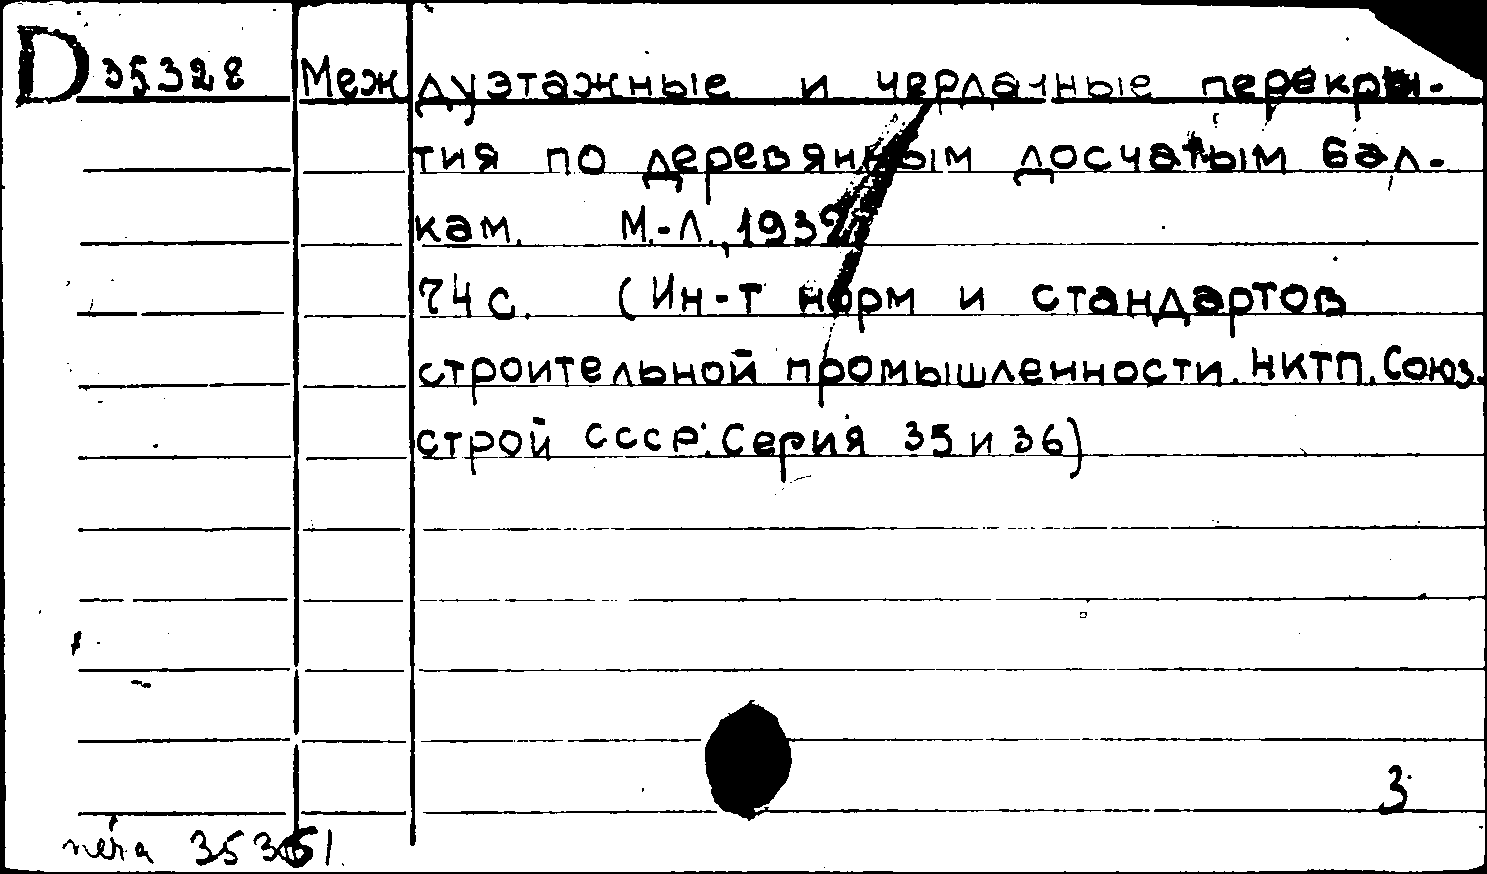 D 35328 Междуэтажные и чердачные перекры-
тия по деревянным досчатым бал-
кам. М.-Л., 1932
74 с. (Ин-т норм и стандартов
строительной промышленности. НКТП. Союз-
строй СССР. Серия 35 и 36)
3